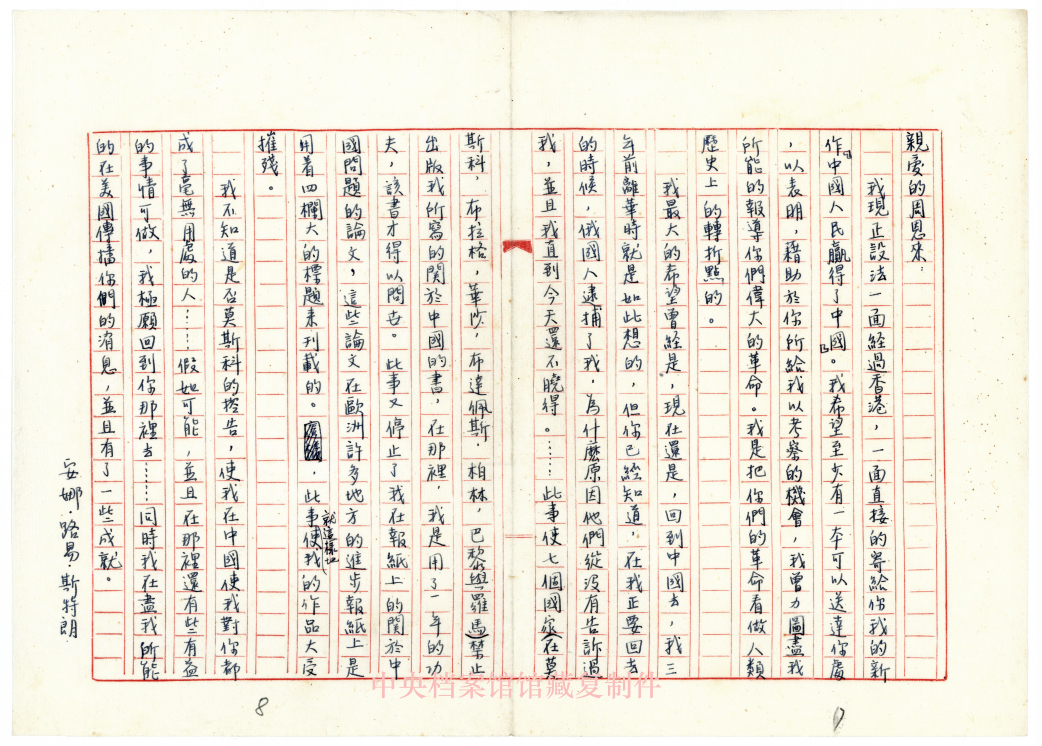 親愛的周恩來：
我現正設法一面經過香港，一面直接的寄給你我的新
作「中國人民贏得了中國」。我希望至少有一本可以送達你處
，以表明，藉助於你所給我以考察的機會，我曾力圖盡我
所能的報導你們偉大的革命。我是把你們的革命看做人類
歷史上的轉折點的。
我最大的希望曾經是，現在還是，回到中國去，我三
年前離華時就是如此想的，但你已經知道，在我正要回去
的時候，俄國人逮捕了我，為什麼原因他們從沒有告訴過
我，並且我直到今天還不曉得。……此事使七個國家在莫
斯科，布拉格，華沙，布達佩斯，柏林，巴黎與羅馬禁止
出版我所寫的關於中國的書，在那裡，我是用了一年的功
夫，該書才得以問世。此事又停止了我在報紙上的關於中
國問題的論文，這些論文在歐洲許多地方的進步報紙上是
用着四欄大的標題來刊載的。，此事就這樣地使我的作品大受
摧殘。
我不知道是否莫斯科的控告，使我在中國使我對你都
成了毫無用處的人……假如可能，並且在那裡還有些有益
的事情可做，我極願回到你那裡去……同時我在盡我所能
的在美國傳播你們的消息，並且有了一些成就。
安娜·路易·斯特朗
中央档案馆馆藏复制件
8